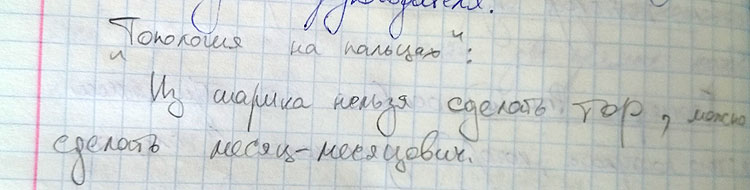 руководителя.
"Топология на пальцах":
Из шарика нельзя сделать тор, можно
сделать месяц-месяцович.